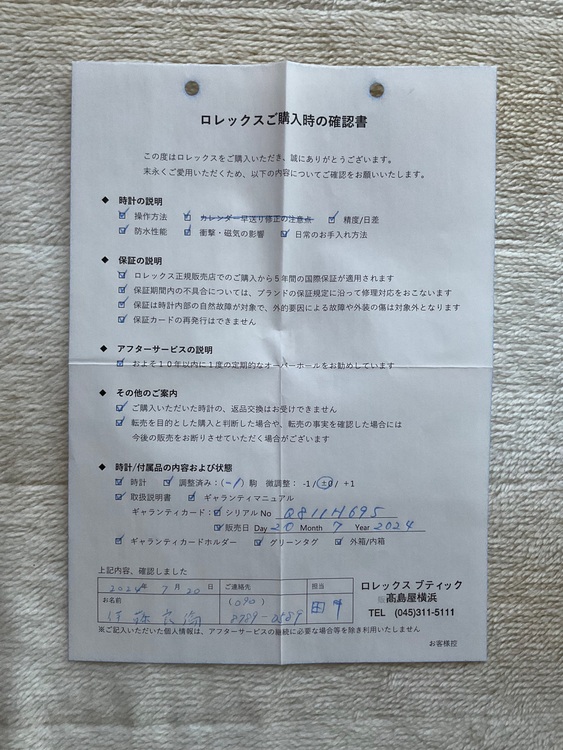 ロレックスご購入時の確認書
この度はロレックスをご購入いただき、誠にありがとうございます。
末永くご愛用いただくため、以下の内容についてご確認をお願いいたします。
◆ 時計の説明
☑ 操作方法 ☑ カレンダー早送り修正の注意点 ☑ 精度/日差
☑ 防水性能 ☑ 衝撃・磁気の影響 ☑ 日常のお手入れ方法
◆ 保証の説明
☑ ロレックス正規販売店でのご購入から5年間の国際保証が適用されます
☑ 保証期間内の不具合については、ブランドの保証規定に沿って修理対応をおこないます
☑ 保証は時計内部の自然故障が対象で、外的要因による故障や外装の傷は対象外となります
☑ 保証カードの再発行はできません
◆ アフターサービスの説明
☑ およそ10年以内に1度の定期的なオーバーホールをお勧めしています
◆ その他のご案内
☑ ご購入いただいた時計の、返品交換はお受けできません
☑ 転売を目的とした購入と判断した場合や、転売の事実を確認した場合には
今後の販売をお断りさせていただく場合がございます
◆ 時計/付属品の内容および状態
☑ 時計 ☑ 調整済み:(-1)駒 微調整: -1/±0/ +1
☑ 取扱説明書 ☑ ギャランティマニュアル
ギャランティカード:☑ シリアル No Q811H695
☑ 販売日 Day 20 Month 7 Year 2024
☑ ギャランティカードホルダー ☑ グリーンタグ ☑ 外箱/内箱
上記内容、確認しました
2024年 7月20日 ご連絡先 担当
お名前 (090) 8989-0589
ロレックス ブティック
髙島屋横浜
TEL (045)311-5111
※ご記入いただいた個人情報は、アフターサービスの継続に必要な場合等を除き利用いたしません
お客様控